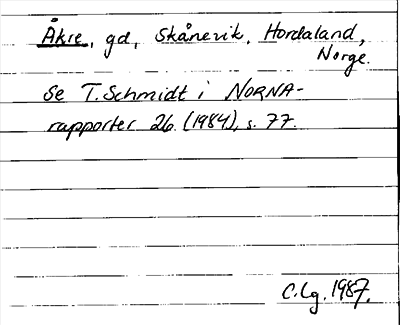 Åkre, gd, Skånevik, Hordaland,
Norge.
Se T. Schmidt i NORNA-
rapporter 26 (1984), s. 77.
C.Lg. 1987.